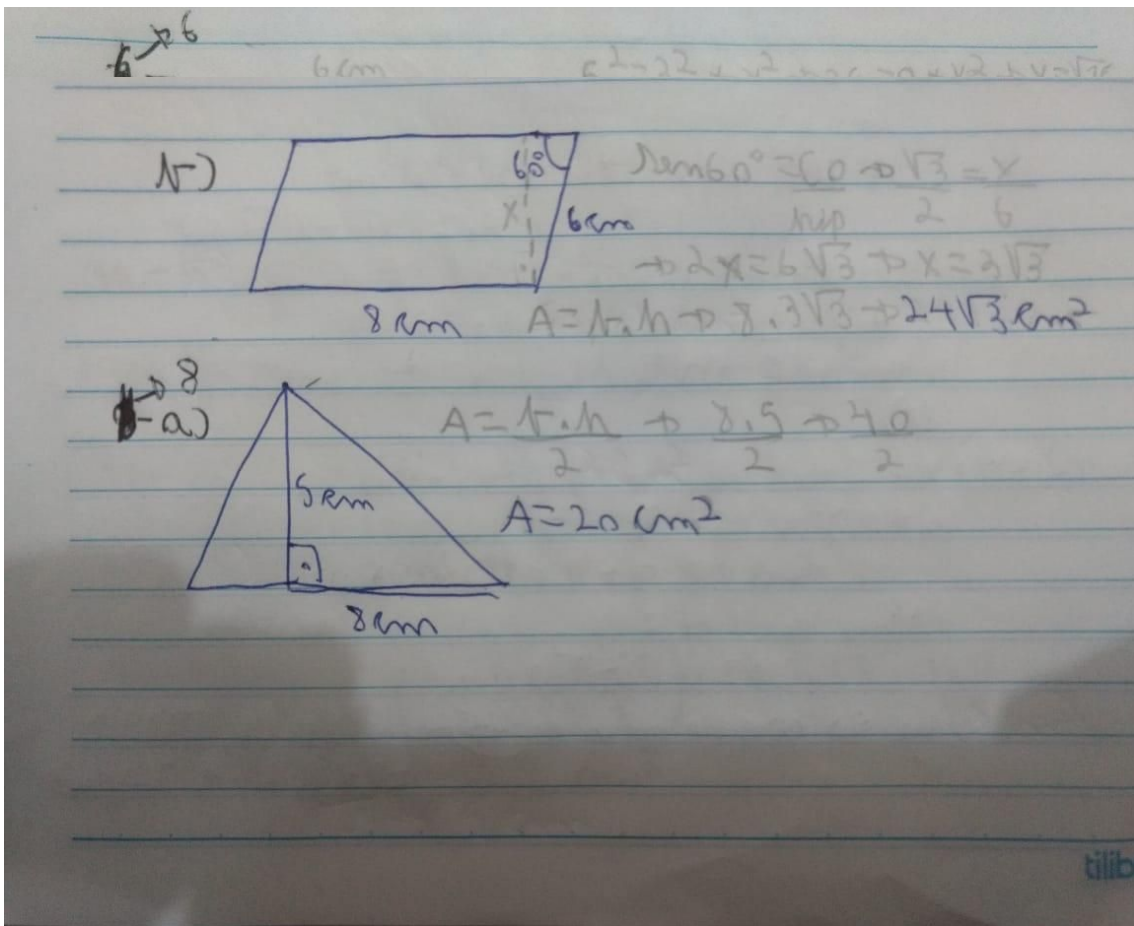 6 → 6
6cm
b)
60°
x
6cm
8cm
sen60° = CO/hip → √3/2 = x/6
→ 2x = 6√3 → x = 3√3
A = b.h → 8.3√3 → 24√3 cm²
→ 8
-a)
5cm
8cm
A = b.h/2 → 8.5/2 → 40/2
A = 20 cm²
tilib